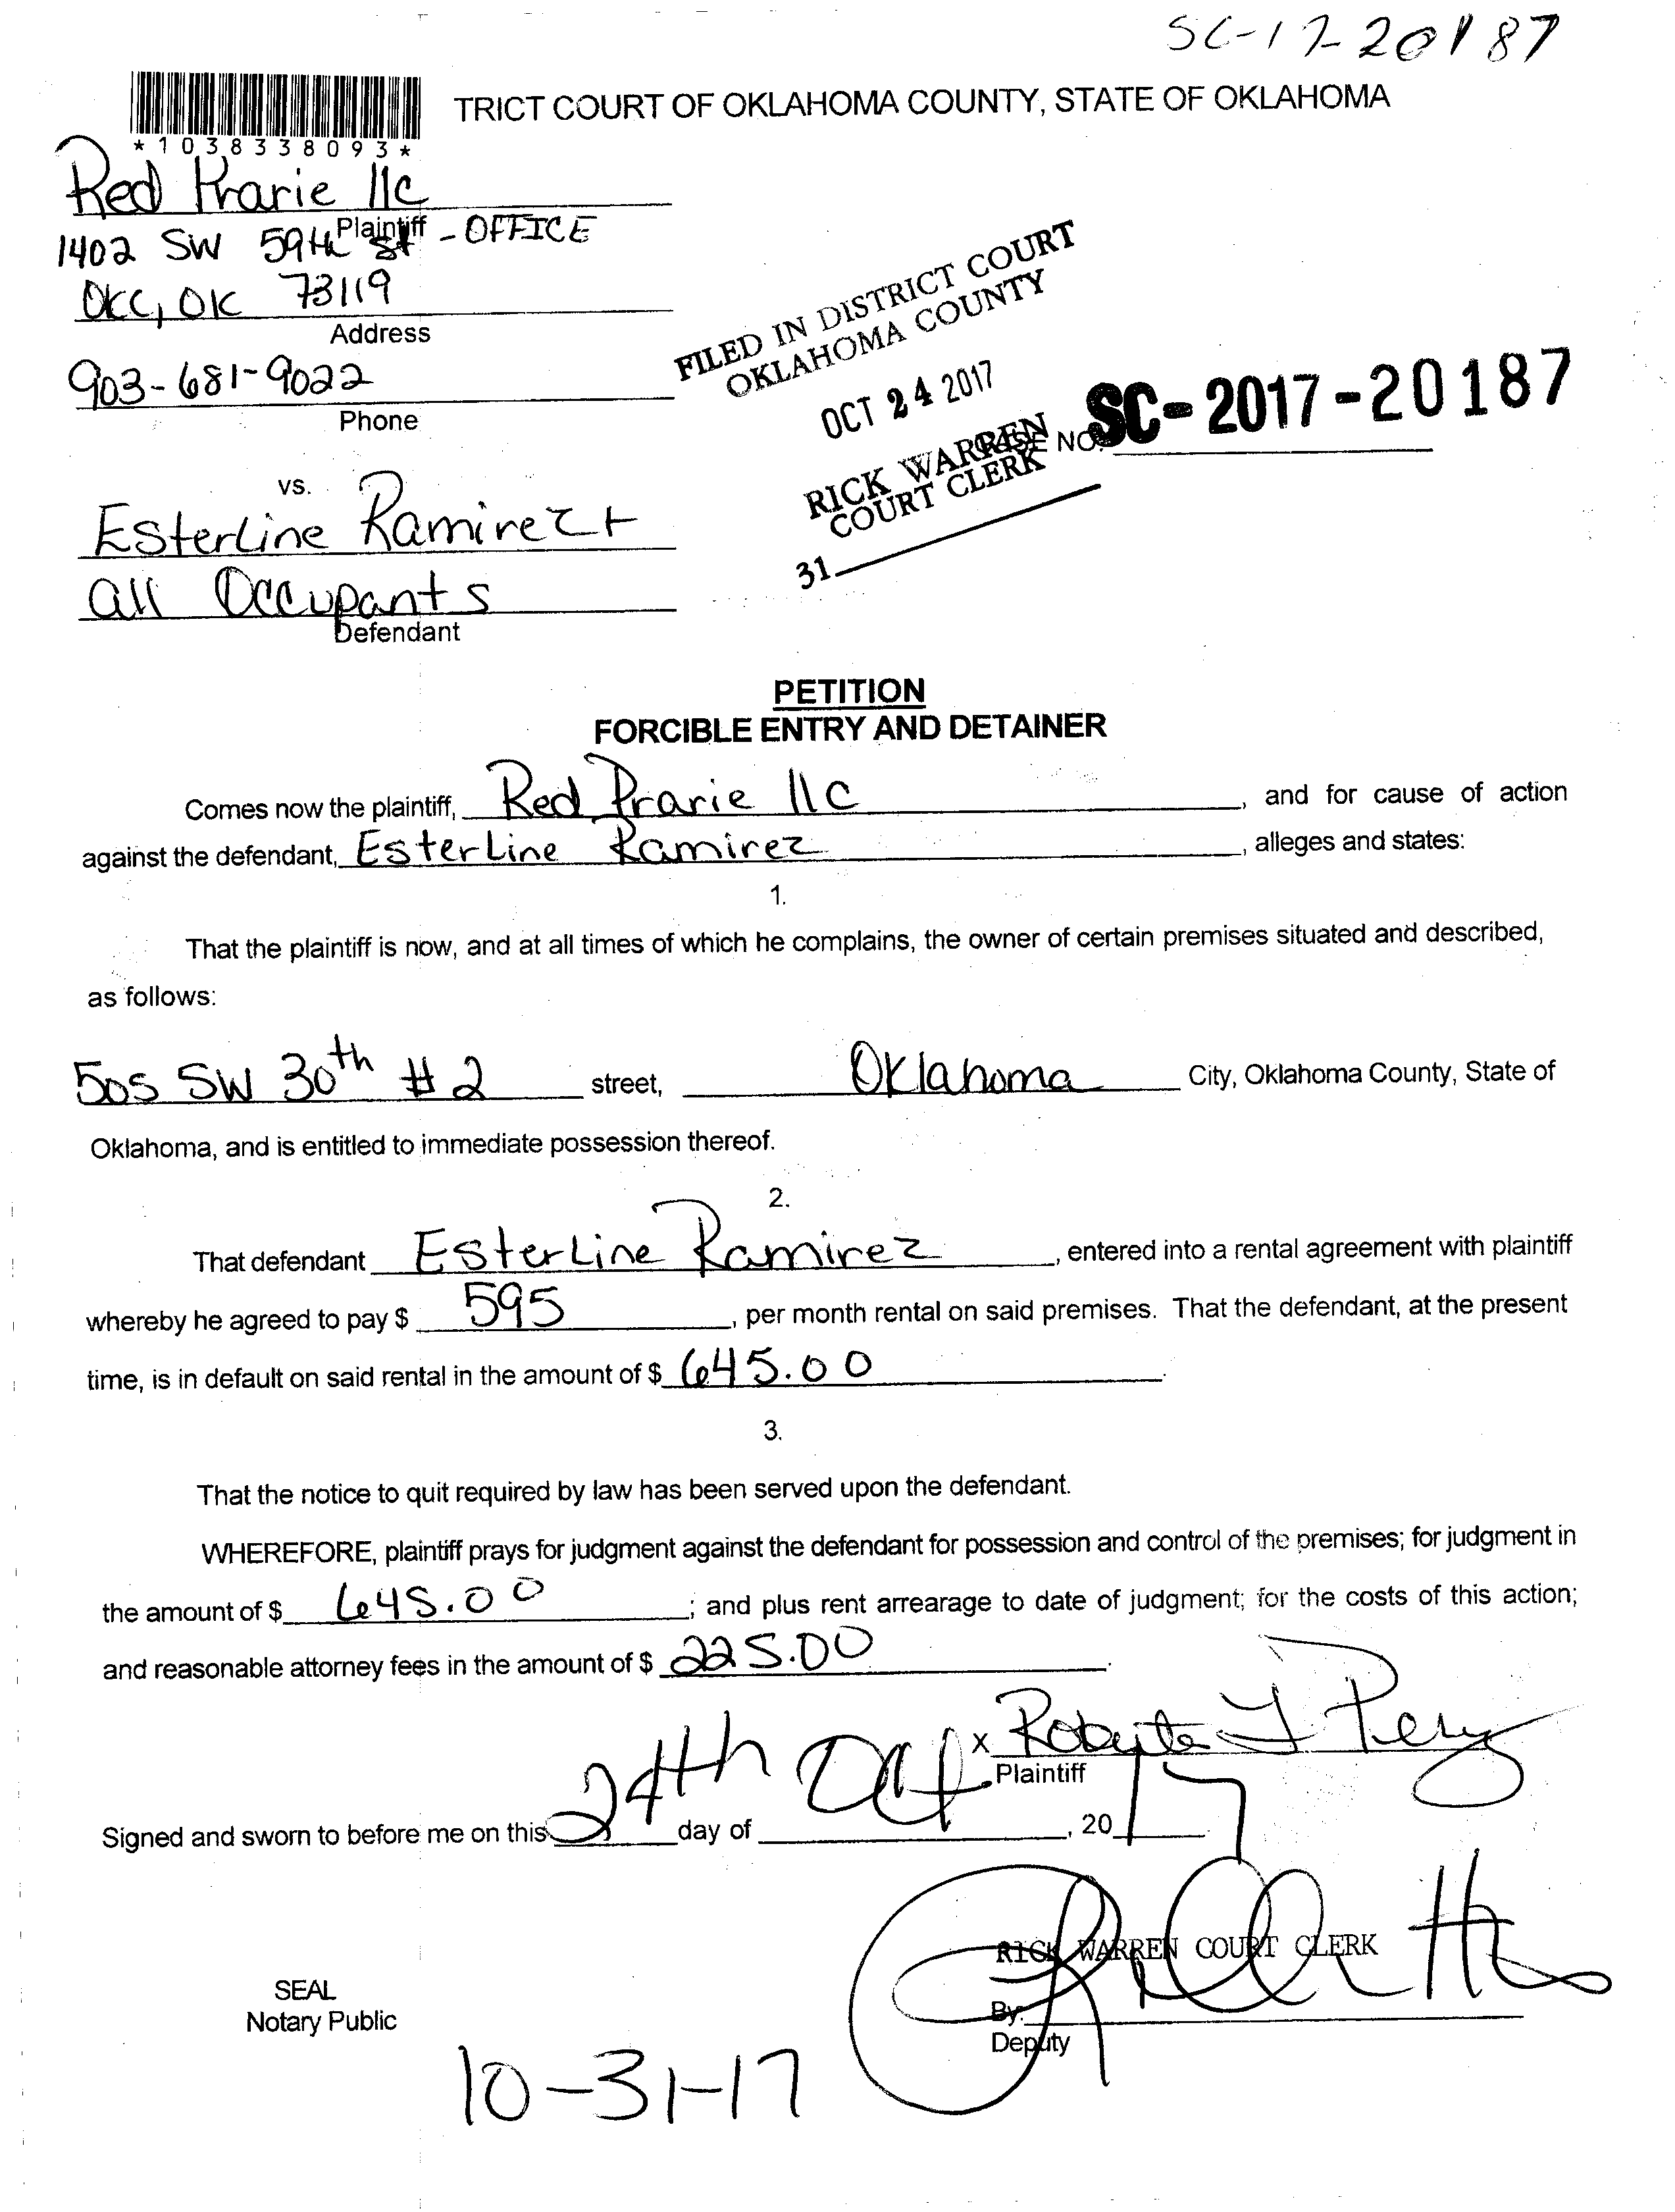 SC-17-20187
TRICT COURT OF OKLAHOMA COUNTY, STATE OF OKLAHOMA
*1038338093*
Red Prarie llc
Plaintiff
1402 SW 59th st - OFFICE
OKC, OK 73119
Address
903-681-9022
Phone
FILED IN DISTRICT COURT
OKLAHOMA COUNTY
OCT 24 2017
RICK WARREN
COURT CLERK
31
CASE NO. SC-2017-20187
vs.
EsterLine Ramirez +
all Occupants
Defendant
PETITION
FORCIBLE ENTRY AND DETAINER
Comes now the plaintiff, Red Prarie llc, and for cause of action
against the defendant, EsterLine Ramirez, alleges and states:
1.
That the plaintiff is now, and at all times of which he complains, the owner of certain premises situated and described,
as follows:
505 SW 30th #2 street, Oklahoma City, Oklahoma County, State of
Oklahoma, and is entitled to immediate possession thereof.
2.
That defendant EsterLine Ramirez, entered into a rental agreement with plaintiff
whereby he agreed to pay $ 595, per month rental on said premises. That the defendant, at the present
time, is in default on said rental in the amount of $ 645.00.
3.
That the notice to quit required by law has been served upon the defendant.
WHEREFORE, plaintiff prays for judgment against the defendant for possession and control of the premises; for judgment in
the amount of $ 645.00; and plus rent arrearage to date of judgment; for the costs of this action;
and reasonable attorney fees in the amount of $ 225.00.
x Roberta J Perry
Plaintiff
Signed and sworn to before me on this 24th day of Oct, 2017
RICK WARREN COURT CLERK
SEAL
Notary Public
By:
Deputy
10-31-17